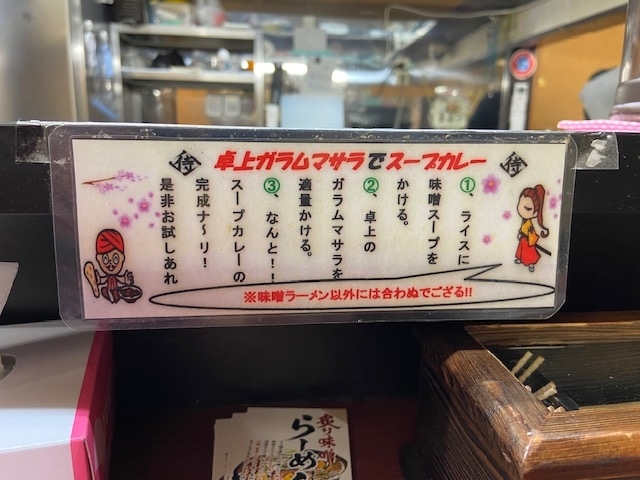 侍 卓上ガラムマサラでスープカレー 侍
①、ライスに
味噌スープを
かける。
②、卓上の
ガラムマサラを
適量かける。
③、なんと!!
スープカレーの
完成ナ〜リ!
是非お試しあれ
※味噌ラーメン以外には合わぬでござる!!
炙り味噌
らーめん